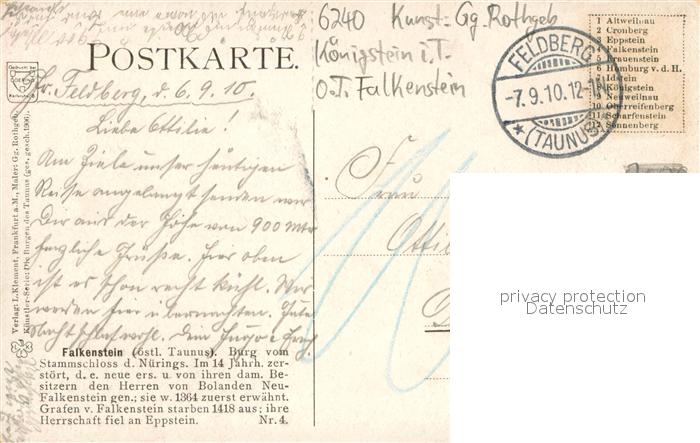 6240 Kunst= Gg. Rothgeb
Königstein i. T.
O.T. Falkenstein
POSTKARTE.
Gr. Feldberg, d. 6. 9. 10.
Liebe Ottilie!
Am Ziele unser heutigen
Reise angelangt senden wir
Dir aus der Höhe von 900 Mtr
herzliche Grüße. Hier oben
ist es schon recht kühl. Wir
werden hier übernachten. Gute
Nacht Schlaf wohl. Dein Hugo &
Falkenstein (östl. Taunus). Burg vom
Stammschloss d. Nürings. Im 14 Jahrh. zer-
stört, d. e. neue ers. u von ihren dam. Be-
sitzern den Herren von Bolanden Neu-
Falkenstein gen.; sie w. 1364 zuerst erwähnt.
Grafen v. Falkenstein starben 1418 aus; ihre
Herrschaft fiel an Eppstein. Nr. 4.
Verlag: L. Klement, Frankfurt a. M., Maler: Gg. Rothgeb
Künstler-Serie: Die Burgen des Taunus (ges. gesch. 1906).
FELDBERG
-7.9.10.12-1
*(TAUNUS)
1 Altweilnau
2 Cronberg
3 Eppstein
4 Falkenstein
5 Frauenstein
6 Homburg v. d. H.
7 Idstein
8 Königstein
9 Neuweilnau
10 Oberreifenberg
11 Scharfenstein
12 Sonnenberg
Frau
Ottil
privacy protection
Datenschutz